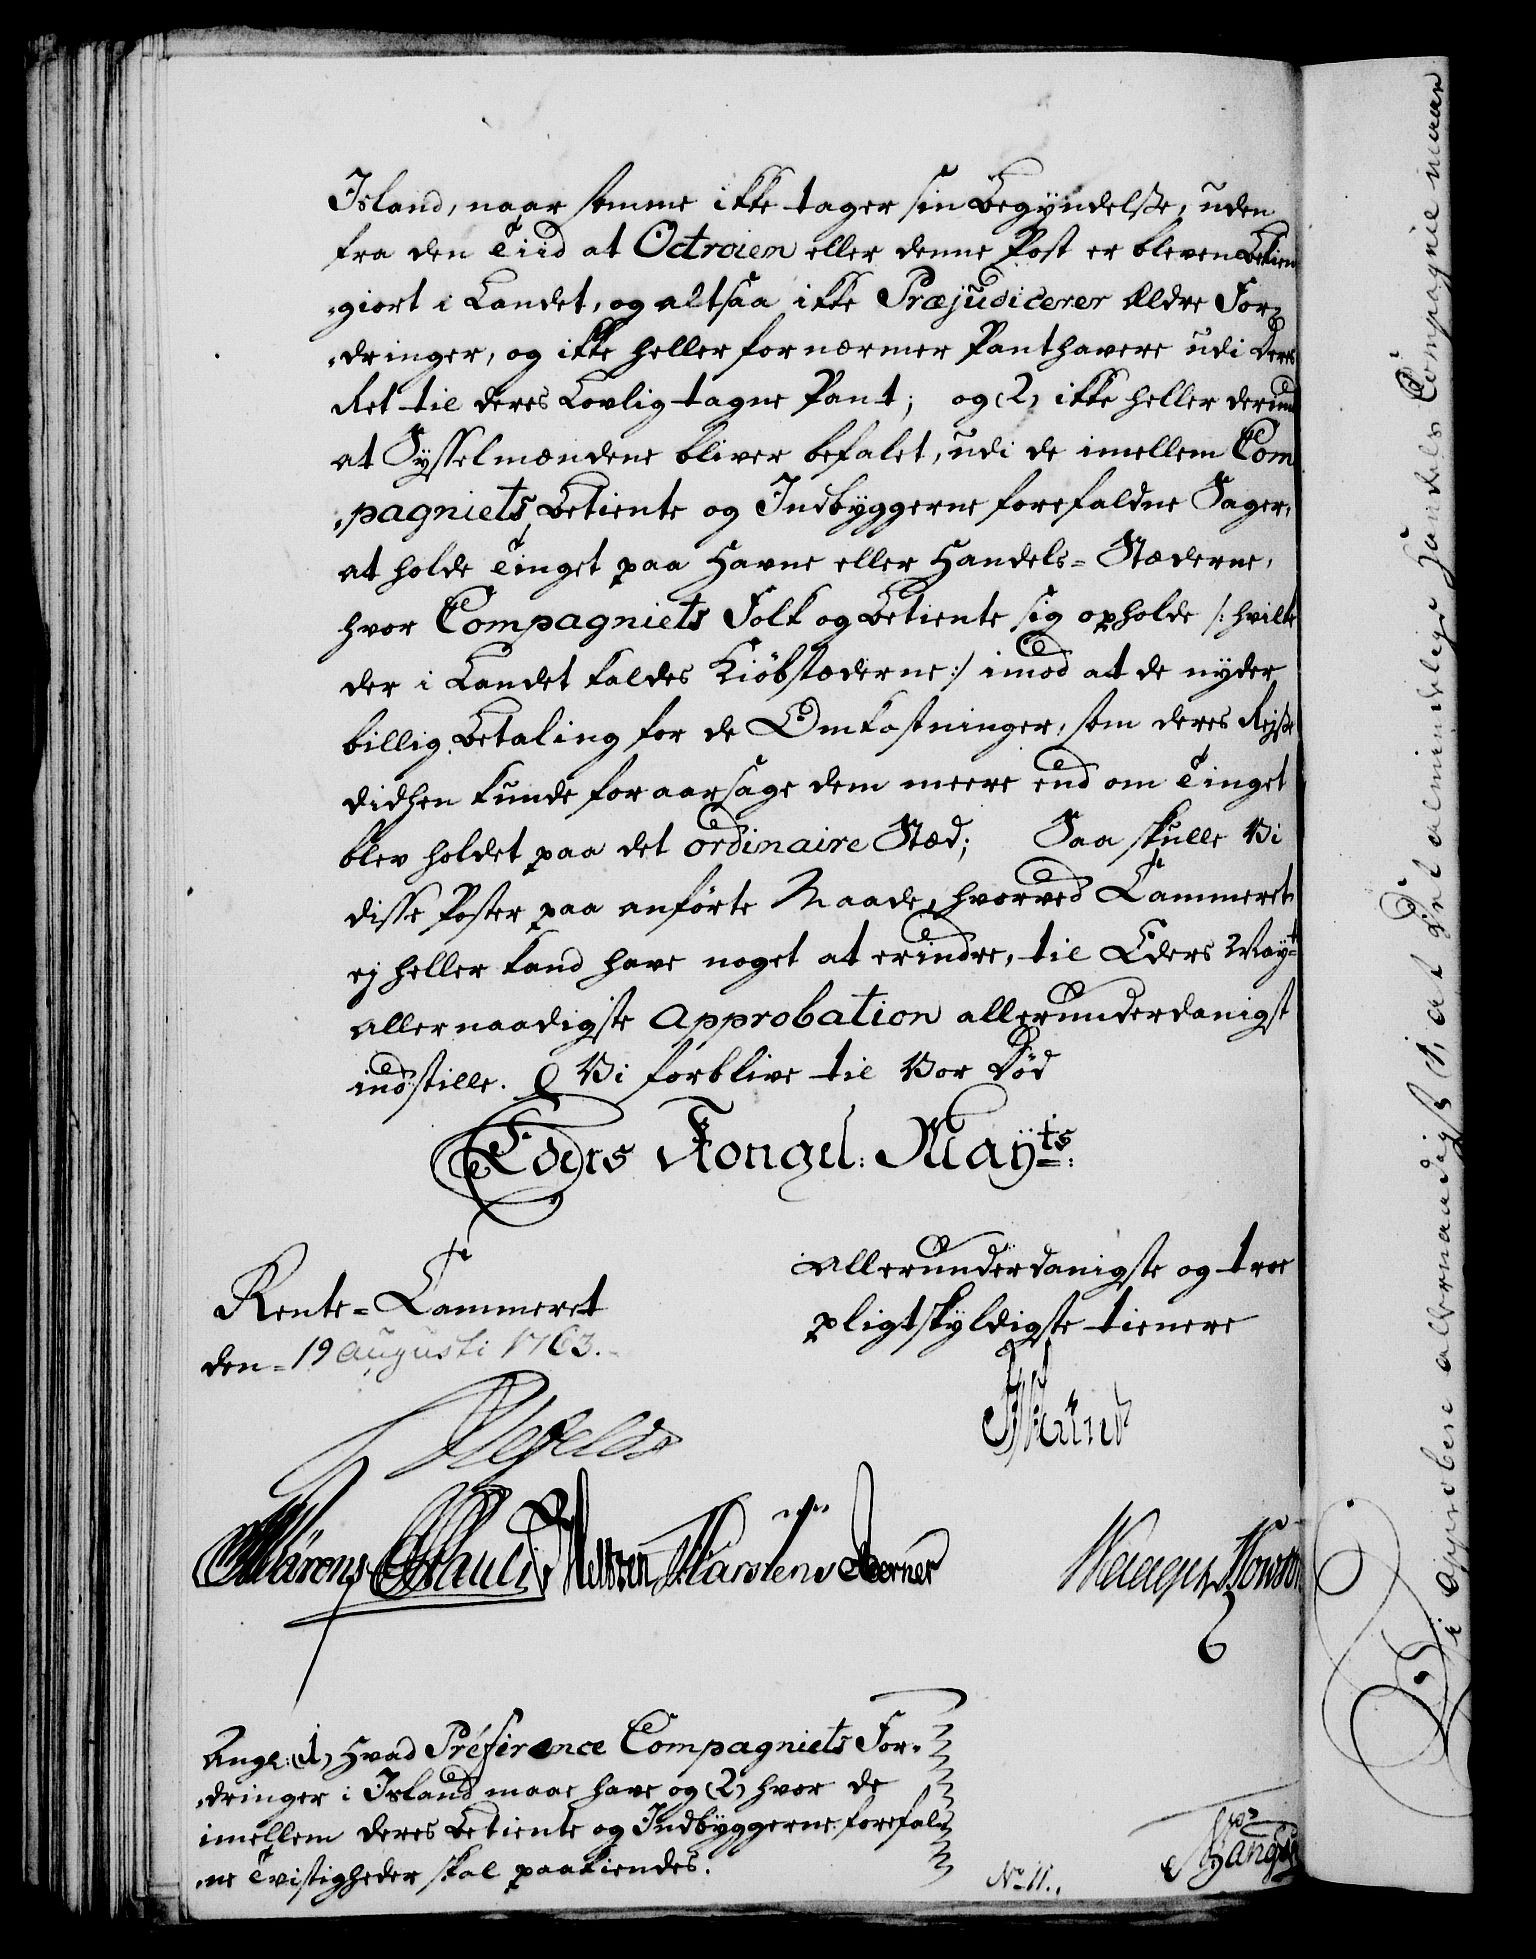 Island, naar samme ikke tager sin Begyndelse, uden
fra den Tiid at Octroien eller denne Post er bleven bekien
„giort i Landet, og altsaa ikke Præjudicerer Eldre For„
„dringer, og ikke heller fornærmer Panthavere udi deres
Ret til deres Lovlig tagne Pant; og (2) ikke heller derimod
at Sysselmændene bliver befalet, udi de imellem Com
„pagniets Betiente og Indbyggerne forefaldne Sager,
at holde Tinget paa Havne eller Handels=Stæderne,
hvor Compagniets Folk og Betiente sig opholde /: hvilke
der i Landet kaldes Kiöbstæderne :/ imod at de nyder
billig Betaling for de Omkostninger, som deres Rejse
didhen kunde foraarsage dem meere end om Tinget
blev holdet paa det ordinaire Stæd; Saa skulle Vi
disse Poster paa anförte Maade, hvorved Cammeret
ej heller kand have noget at erindre, til Eders May:t
allernaadigste Approbation allerunderdanigst
indstille. Vi forblive til Vor Död
Eders Kongel: May:ts
Allerunderdanigste og troe
pligtskyldigste tienere
Rente=Cammeret
den=19 Augusti 1763.
Pauli
Martens Berner
Ang: (1) Hvad Préference Compagniets For„
„dringer i Island maae have og (2) hvor de
imellem deres Betiente og Indbyggerne forefald
„ne Tvistigheder skal paakiendes.
No 11.
Vi Approbere allernaadigst (1, at det almindelige Handels Compagnie maae